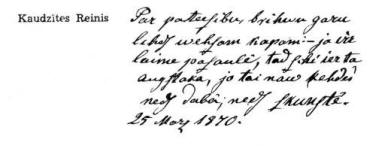 Kaudzītes Reinis
Par pateesibu, brihwu garu
lihdſ wehsam kapam: – ja ir
laime paſaulē, tad ſchi ir ta
augſtaka, jo tai naw
nedſ dabâ, nedſ ſkunſtē.
25 Marz 1870.